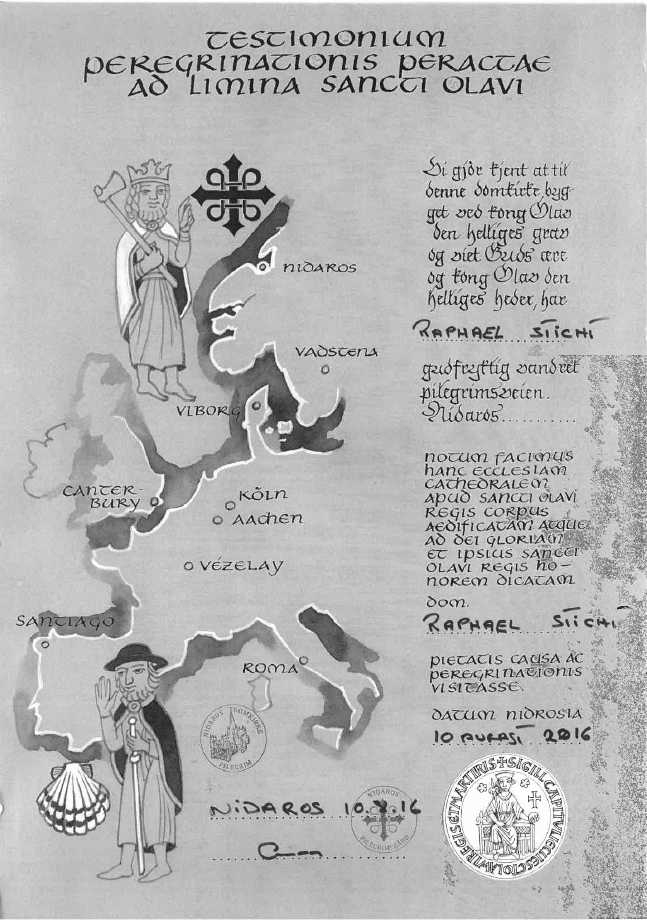 TESTIMONIUM
PEREGRINATIONIS PERACTAE
AD LIMINA SANCTI OLAVI
Vi gjør kjent at til
denne domkirke, byg-
get ved kong Olav
den helliges grav
og viet Guds ære
og kong Olav den
helliges heder, har
RAPHAEL STICHT
gudfryktig vandret
pilegrimsveien.
Nidaros
NOTUM FACIMUS
HANC ECCLESIAM
CATHEDRALEM
APUD SANCTI OLAVI
REGIS CORPUS
AEDIFICATAM ATQUE
AD DEI GLORIAM
ET IPSIUS SANCTI
OLAVI REGIS HO-
NOREM DICATAM
DOM.
RAPHAEL STICHT
PIETATIS CAUSA AC
PEREGRINATIONIS
VISITASSE.
DATUM NIDROSIA
10 AUGAST 2016
NIDAROS
VADSTENA
VIBORG
CANTER-
BURY
KÖLN
AACHEN
VÉZELAY
SANTIAGO
ROMA
NIDAROS DOMKIRKE
PILEGRIM
NIDAROS 10.8.16
NIDAROS
PILEGRIMSGÅRD